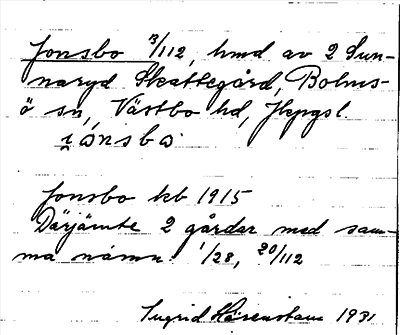 Jonsbo 3/112, hmd av 2 Sun-
naryd Skattegård, Bolms-
ö sn, Västbo hd, Jkpgs l.
jónsbo
Jonsbo kb 1915
Därjämte 2 gårdar med sam-
ma namn. 1/28, 20/112
Ingrid 1931